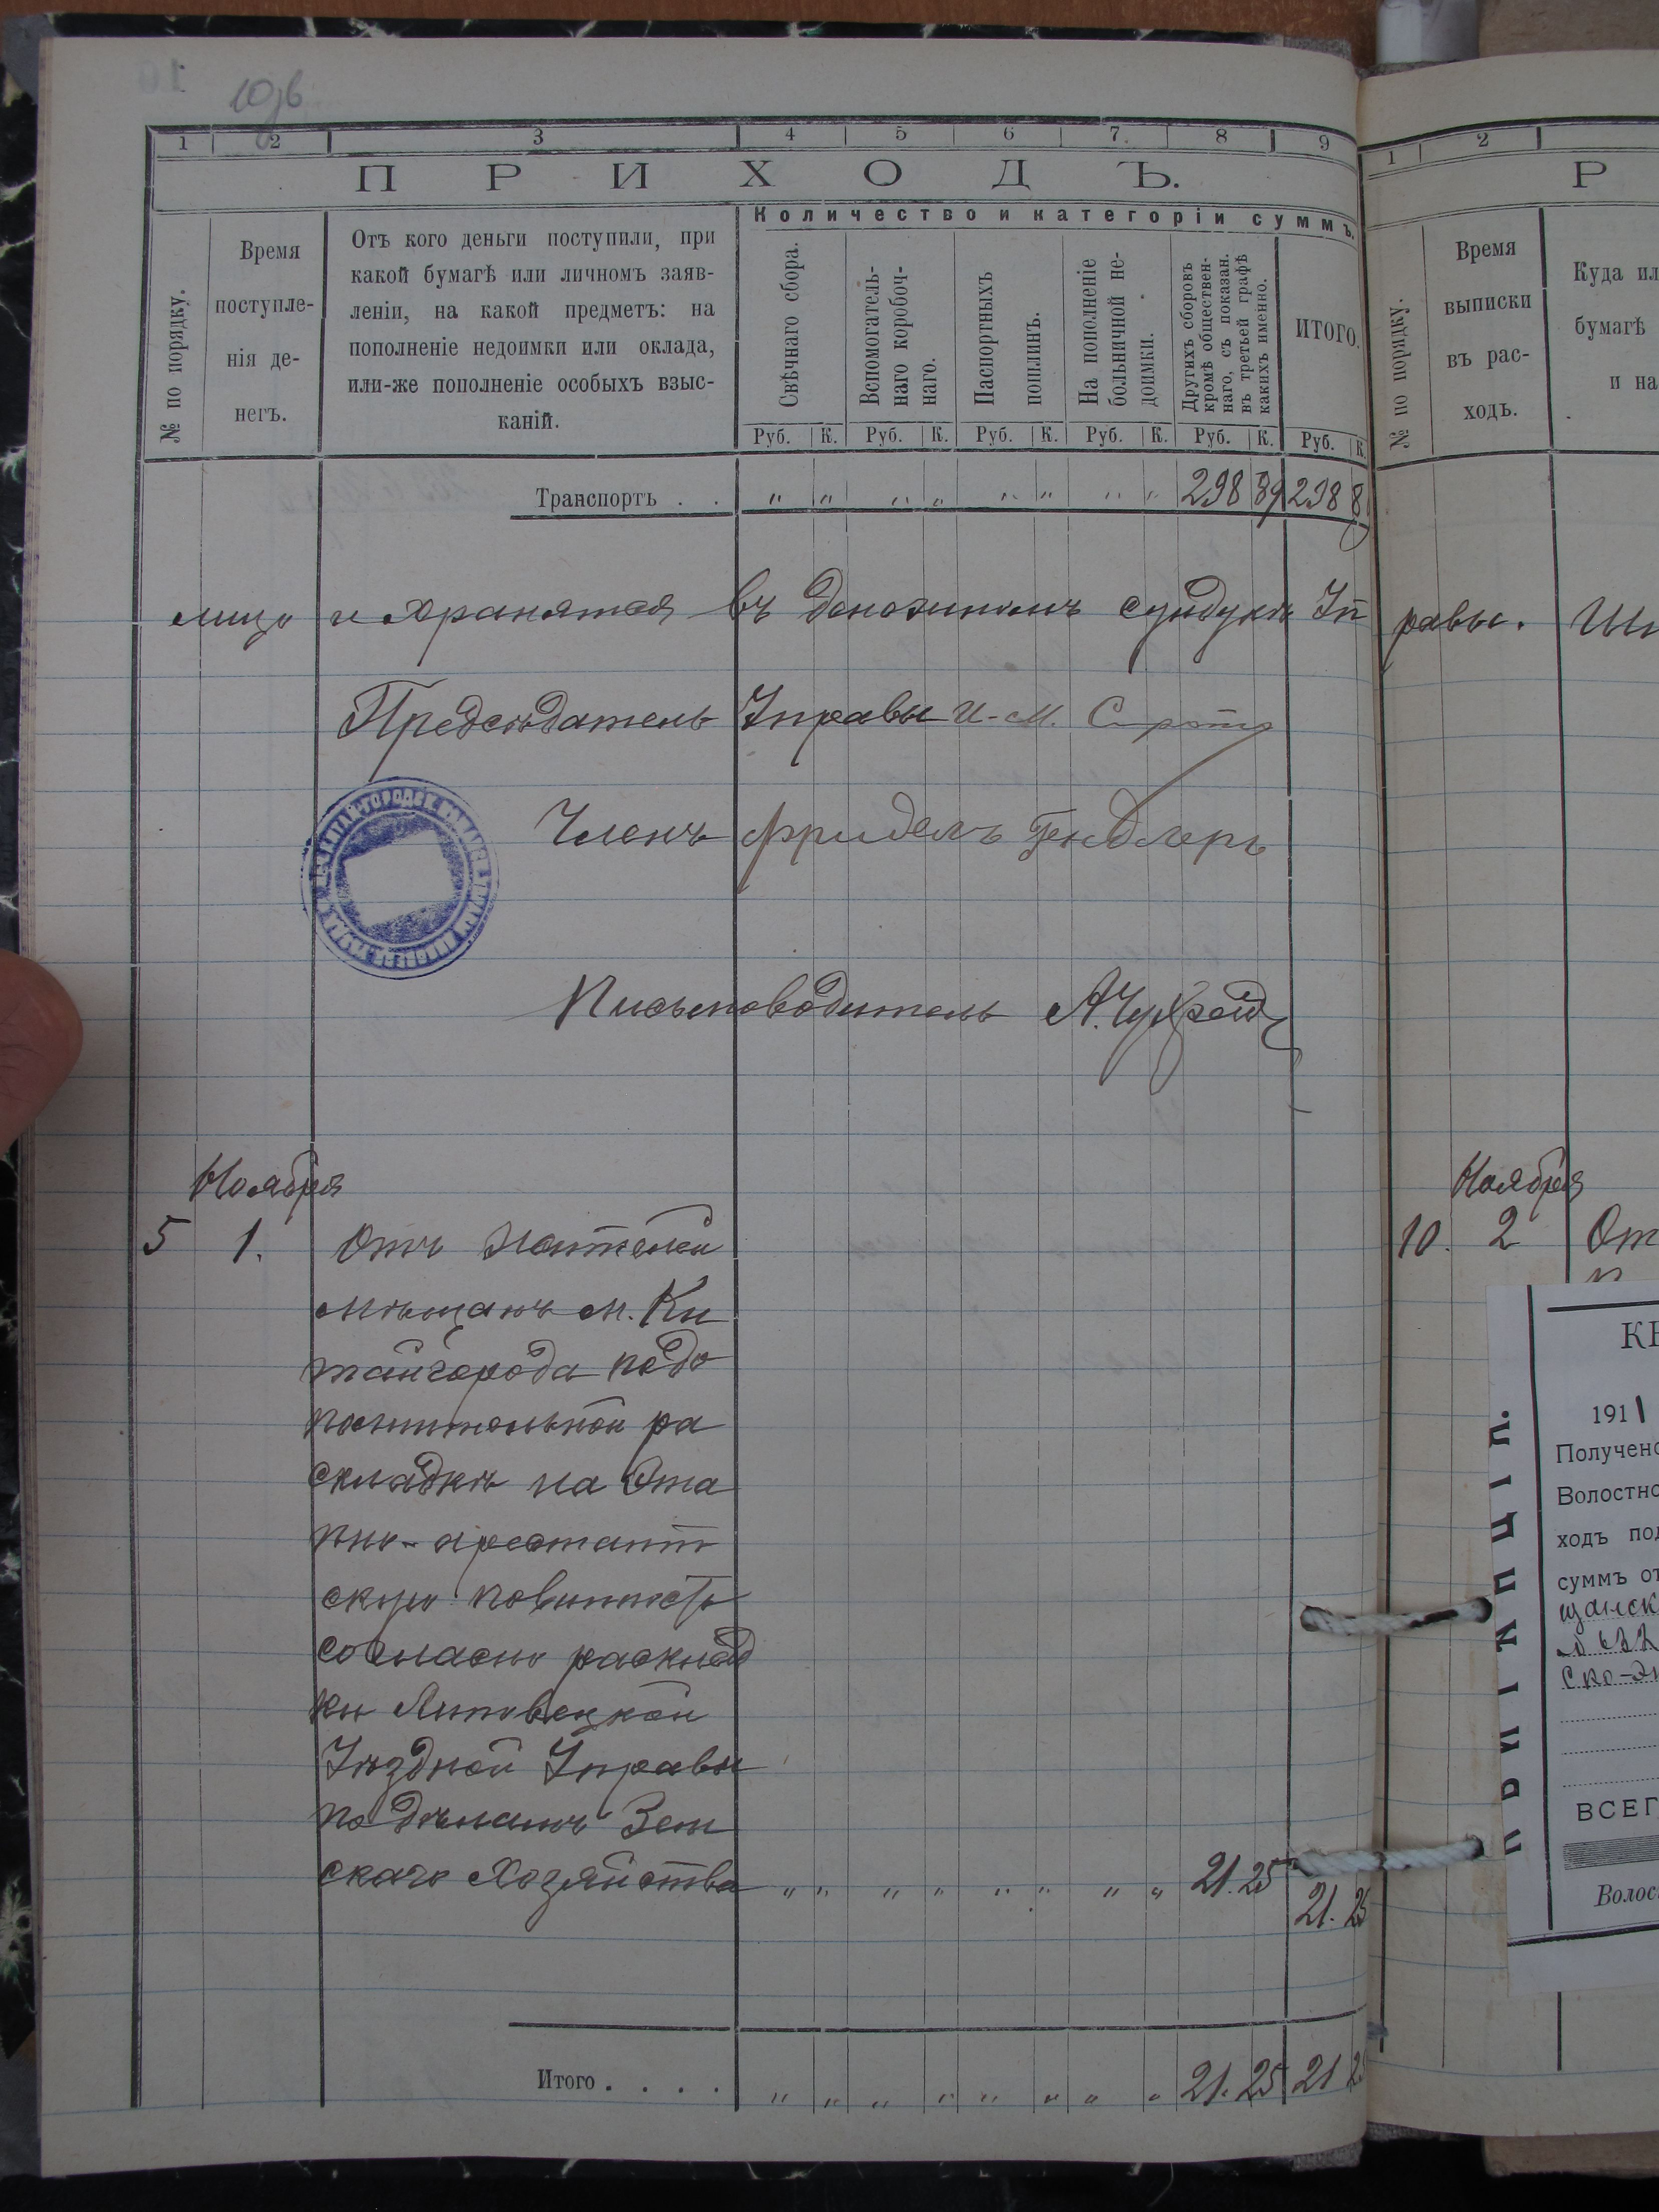 10 об
1 2 3 4 5 6 7. 8 9
П Р И Х О Д Ъ.
Количество и категоріи суммъ.
№ по порядку.
Время
поступле-
нія де-
негъ.
Отъ кого деньги поступили, при
какой бумагѣ или личномъ заяв-
леніи, на какой предметъ: на
пополненіе недоимки или оклада,
или-же пополненіе особыхъ взыс-
каній.
Свѣчнаго сбора.
Вспомогатель-
наго коробоч-
наго.
Паспортныхъ
пошлинъ.
На пополненіе
больничной не-
доимки.
Другихъ сборовъ
кромѣ обществен-
наго, съ показан.
въ третьей графѣ
какихъ именно.
ИТОГО.
Руб. К. Руб. К. Руб. К. Руб. К. Руб. К. Руб. К.
Транспортъ . . " " " " " " " " 298 89 298 8
лицо и хранятся въ денежномъ сундукѣ Уп
Предсѣдатель Управы И-М.
Членъ Фридель Гендлеръ
Письмоводитель А.
Ноября
5 1. Отъ
мѣщанъ м. Ки
тайгорода по до
полнительной ра
складкѣ на Эта
пно-арестант
скую повинность
согласно расклад
ки Липовецкой
Уѣздной Управы
по дѣламъ Зем
скаго Хозяйства " " " " " " " " 21. 25
21. 25
Итого . . . . " " " " " " " " 21. 25 21 25
1 2
Р
№ по порядку.
Время
выписки
въ рас-
ходъ.
Куда ил
бумагѣ
и на
равы.
Ноября
10. 2 От
КВ
1911
Получено
Волостно
ходъ под
суммъ от
щанск
ско-э
ВСЕГ
Волос